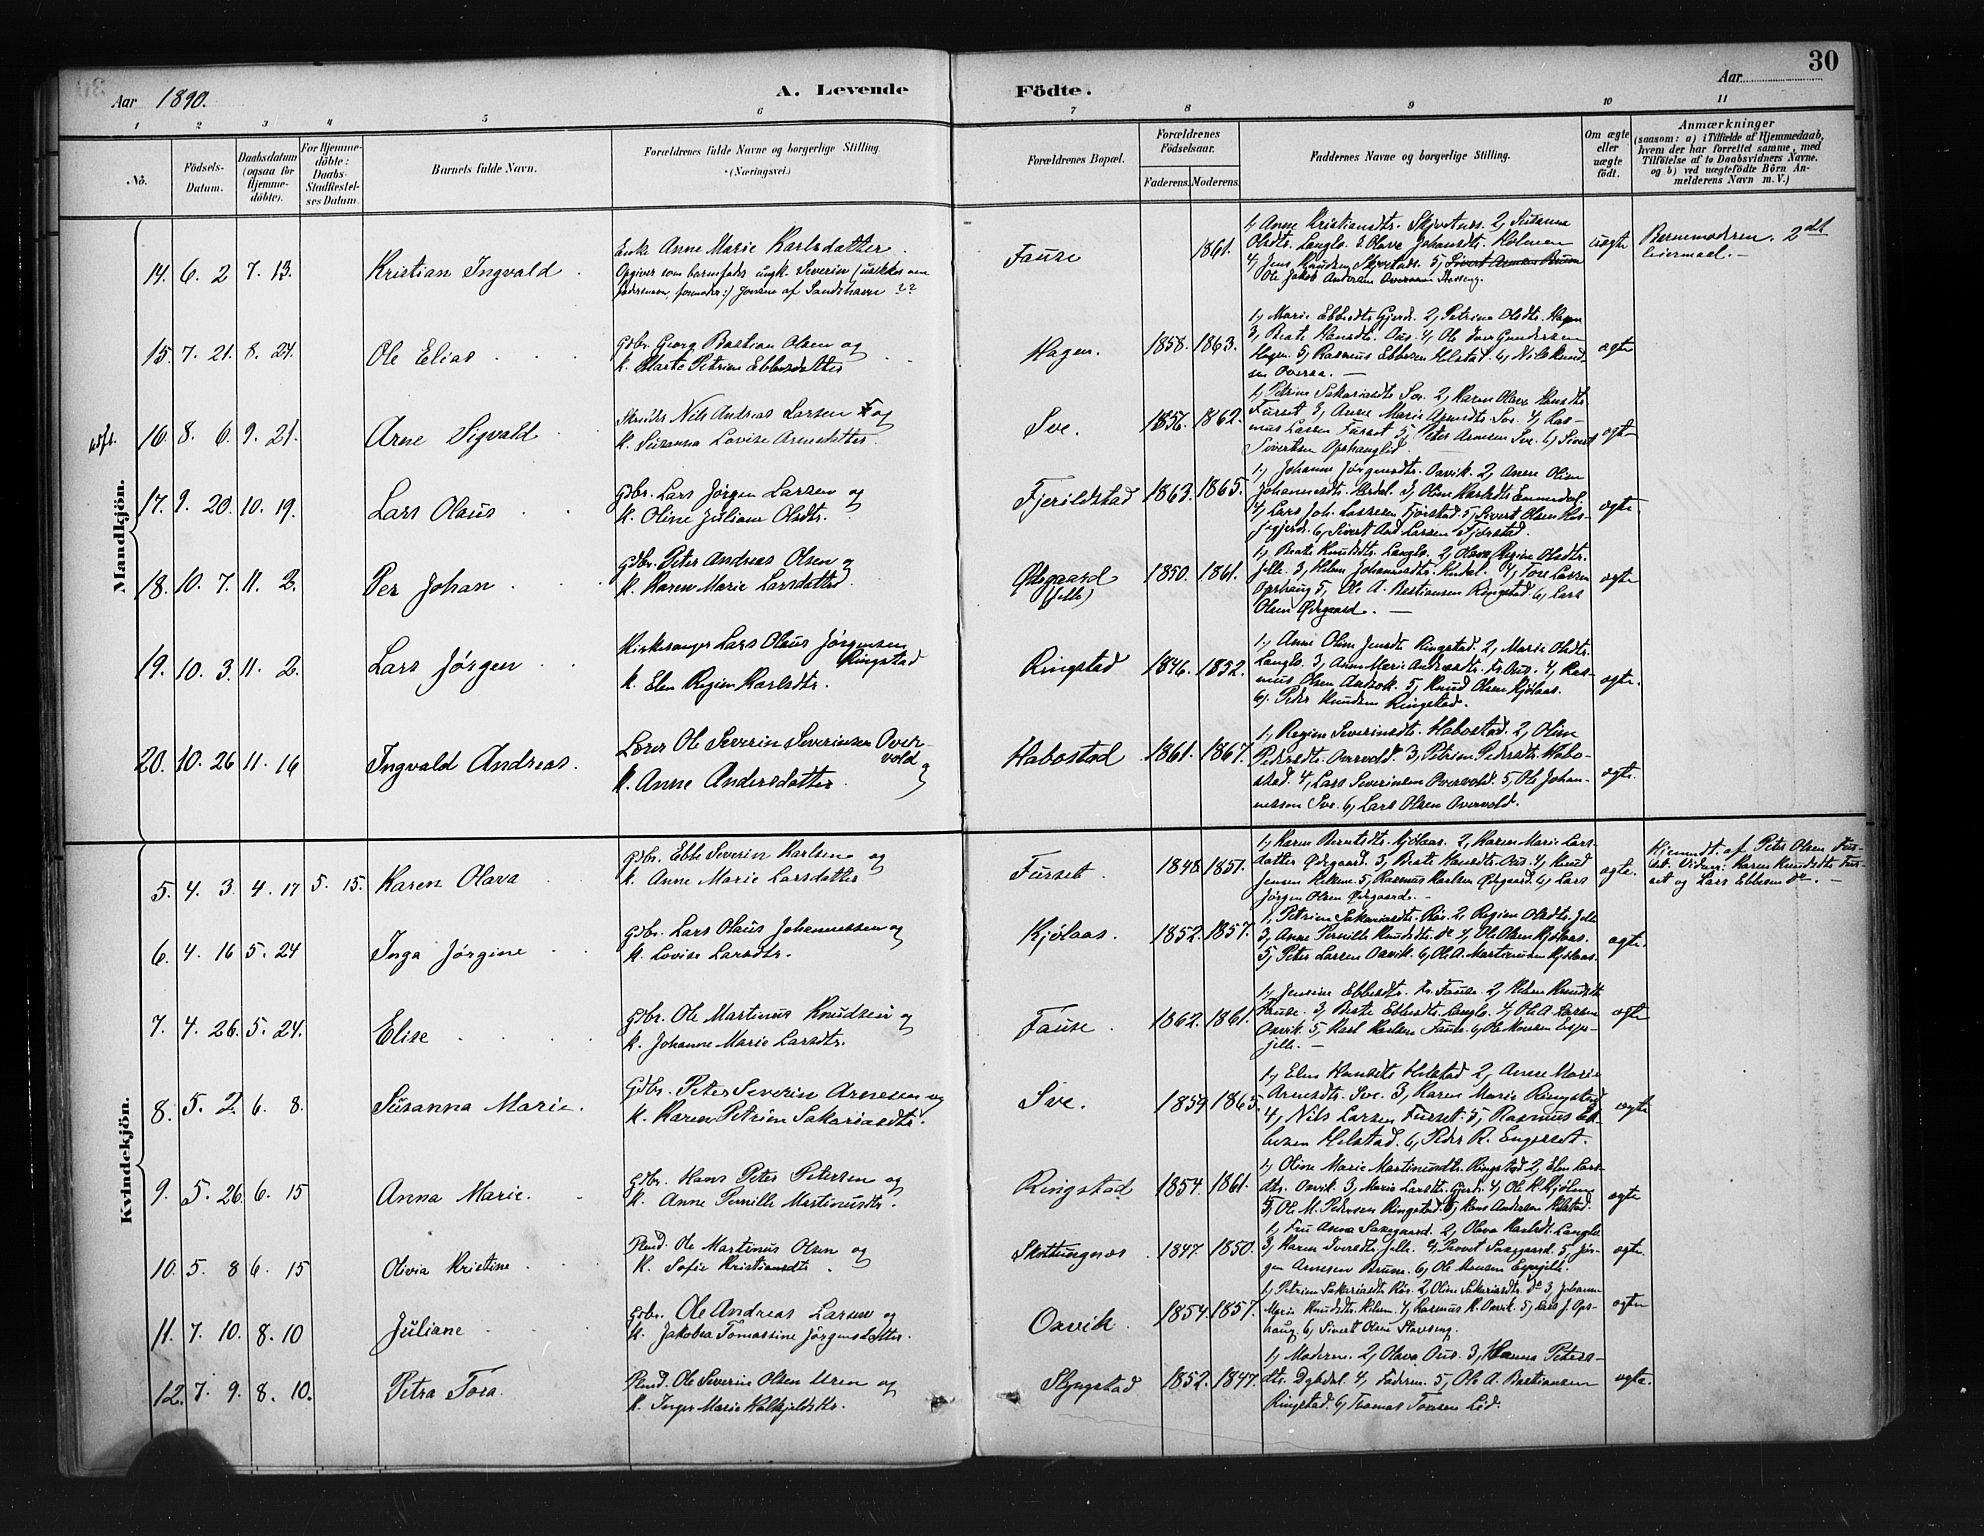 Aar 1890.
A. Levende
Födte.
Aar
30
1 2 3 4 5 6 7 8 9 10 11
No.
Födsels-
Datum.
Daabsdatum
(ogsaa for
Hjemme-
döbte).
For Hjemme-
döbte:
Daabs-
Stadfæstel-
ses Datum.
Barnets fulde Navn.
Forældrenes fulde Navne og borgerlige Stilling.
(Næringsvei.)
Forældrenes Bopæl.
Forældrenes
Födselsaar.
Faderens. Moderens.
Faddernes Navne og borgerlige Stilling.
Om ægte
eller
uægte
födt.
Anmærkninger
(saasom: a) i Tilfælde af Hjemmedaab,
hvem der har forrettet samme, med
Tilföielse af to Daabsvidners Navne,
og b) ved uægtefödte Börn An-
melderens Navn m. V.)
Mandkjön.
14. 6. 2 7. 13. Kristian Ingvald
Enke Anne Marie Karlsdatter.
Opgiver som barnefader ungk. Severin
af Sandshavn ??
Fause 1861.
1, Anne Kristiansdtr. 2, Susanna
Olsdtr. Langlo. 3, Olave Johansdtr. Holmen
4, Jens Knudsen 5,
Ole Jakob Andersen
uægte
Barnemoderen. 2det
leiermaal.
15. 7. 21. 8. 24. Ole Elias
Gdbr. Georg Bastian Olsen og
k. Marte Petrine Ebbesdatter
Hagen. 1858. 1863.
1, Marie Ebbesdtr Gjerde. 2, Petrine Olsdtr. Hagen
3, Beate Hansdtr. Aus. 4, Ole Iver Gundersen
Hagen. 5, Rasmus Ebbesen Helstad. 6, Nils Knud-
sen Overaa.
ægte
16. 8. 6. 9. 21. Arne Sigvald
Nils Andreas Larsen og
k. Susanna Lovise Arnesdatter.
Sve. 1856. 1862.
1, Petrine Sakariasdtr Sve. 2, Karen Olave Hansdtr
Furset 3, Anne Marie Arnesdtr Sve. 4, Ras-
mus Larsen Furset 5, Peter Arnesen Sve. 6, Sivert
Sivertsen Opshaugli
ægte
17. 9. 20. 10. 19. Lars Olaus
Gdbr. Lars Jørgen Larsen og
k. Oline Juliane Olsdtr.
Fjerildstad 1863. 1865.
1, Johanne Jørgensdtr. Oavik. 2, Anne Oline
Johannesdtr. 3, Oline Karlsdtr
4, Lars Joh. Larsen 5, Sivert Olsen
6, Sivert And Larsen Fjørstad.
ægte
18. 10. 7. 11. 2. Per Johan
Gdbr. Peter Andreas Olsen og
k. Karen Marie Larsdatter
Ødegaard
(Jelle) 1850. 1861.
1, Beate Knudsdtr. Langlo. 2, Olava Regine Olsdtr.
Jelle. 3, Helene Johannesdtr. 4, Tore Larsen
Opshaug 5, Ole A. Bastiansen Ringstad. 6, Lars
Olsen Ødegaard.
ægte
19. 10. 3. 11. 2. Lars Jørgen
Kirkesanger Lars Olaus Jørgensen
Ringstad
k. Elen Regine Karlsdtr.
Ringstad 1846. 1852.
1, Anne Oline Jensdtr Ringstad. 2, Marie Olsdtr.
Langlo. 3, Anne Marie Andreasdtr. Aus. 4, Ras-
mus Olsen 5, Knud Olsen Kjølaas.
6, Peder Knudsen Ringstad.
ægte.
20. 10. 26 11. 16 Ingvald Andreas.
Lærer Ole Severin Severinsen Over-
vold og
k. Anne Andersdatter
Habostad 1861. 1867.
1, Regine Severinsdtr. Habostad. 2, Oline
Pedersdtr. Overvold. 3, Petrine Pedersdtr. Habo-
stad. 4, Lars Severinsen Overvold. 5, Ole Johan-
nessen Sve. 6, Lars Olsen Overvold.
ægte.
Kvindekjön.
5. 4. 3. 4. 17 5. 15. Karen Olava
Gdbr. Ebbe Severin Karlsen og
k. Anne Marie Larsdatter
Furset 1848 1851.
1, Karen Berntsdtr. Kjølaas. 2, Karen Marie Lars-
datter Ødegaard. 3, Beate Hansdtr. Aus. 4, Knud
Jensen 5, Rasmus Karlsen Ødegaard. 6, Lars
Jørgen Olsen Ødegaard.
ægte.
Hjemmedt. af Peter Olsen Fur-
set. Vidner: Karen Knudsdtr. Fur-
set og Lars Ebbesen do.
6. 4. 16 5. 24 Inga Jørgine
Gdbr. Lars Olaus Johannessen og
k. Lovise Larsdtr.
Kjølaas. 1852. 1857.
1, Petrine Sakariasdtr. Røs. 2, Regine Olsdtr. Jelle
3, Anne Pernille Knudsdtr. do 4, Ole Olsen Kjølaas.
5, Peter Larsen Oavik. 6, Ole A. Martinusen Kjølaas.
ægte.
7. 4. 26. 5. 24. Elise
Gdbr. Ole Martinus Knudsen og
k. Johanne Marie Larsdtr.
Fause. 1862. 1861.
1, Jensine Ebbesdtr. Fause. 2, Helene Knudsdtr
Fause. 3, Beate Ebbesdtr. Langlo. 4, Ole A. Larsen
Oavik. 5, Karl Karlsen Fause. 6, Ole Monsen Espe-
jelle.
ægte
8. 5. 2. 6. 8. Susanna Marie.
Gdbr. Peter Severin Arnesen og
k. Karen Petrine Sakariasdtr.
Sve. 1859 1865.
1, Elen Hansdtr Helstad 2, Anne Marie
Arnesdtr. Sve. 3, Karen Marie Ringstad
4, Nils Larsen Furset. 5, Rasmus Eb-
besen Helstad. 6, Peder R. Engeset.
ægte
9. 5. 26. 6. 15 Anna Marie.
Gdbr. Hans Peter Petersen og
k. Anne Pernille Martinusdtr.
Ringstad 1854. 1861.
1, Oline Marie Martinusdtr. Ringstad 2, Elen Lars-
dtr. Oavik. 3, Marie Larsdtr. Gjerde. 4, Ole K. Kjølaas
5, Ole M. Pedersen Ringstad. 6, Hans Andersen Helstad.
ægte
10. 5. 8 6. 15 Olivia Kristine
Pend. Ole Martinus Olsen og
k. Sofie Kristiansdtr.
Skottungnæs 1847. 1850.
1, Fru Anna Saxegaard. 2, Olava Karlsdt. Langlo
3, Karen Iversdtr. Jelle. 4, Provst Saxegaard. 5, Jør-
gen Arnesen Brune. 6, Ole Monsen Espejelle.
ægte.
11. 7. 10. 8. 10 Juliane
Gdbr. Ole Andreas Larsen og
k. Jakobea Tomassine Jørgensdatter.
Oavik. 1854. 1857.
1, Petrine Sakariasdtr Røs. 2, Oline Sakariasdtr. do 3, Johanne
Marie Knudsdtr. 4, Rasmus K. Oavik. 5, Lars J. Ops-
haug. 6, Sivert Olsen
ægte
12. 7. 9. 8. 10. Petra Tora.
Pend. Ole Severin Olsen Uren og
k. Inger Marie Halkjeldsdtr.
Slyngstad 1852. 1847.
1, Moderen. 2, Olava Aus. 3, Hanna Peters-
dtr. Dybdal. 4, Faderen. 5, Ole A. Bastiansen
Ringstad. 6, Tomas Tomsen Lid.
ægte.